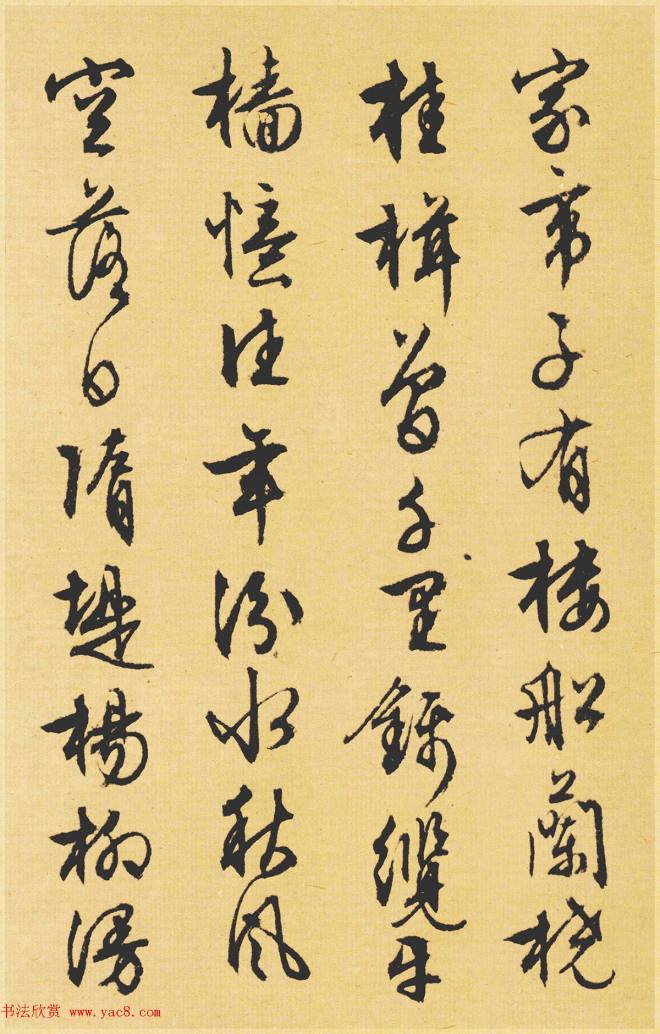 家帝子有樓船蘭橈
桂楫曾千里錦纜牙
檣憶往年汾水秋風
空落日隋堤楊柳漫
书法欣赏 www.yac8.com